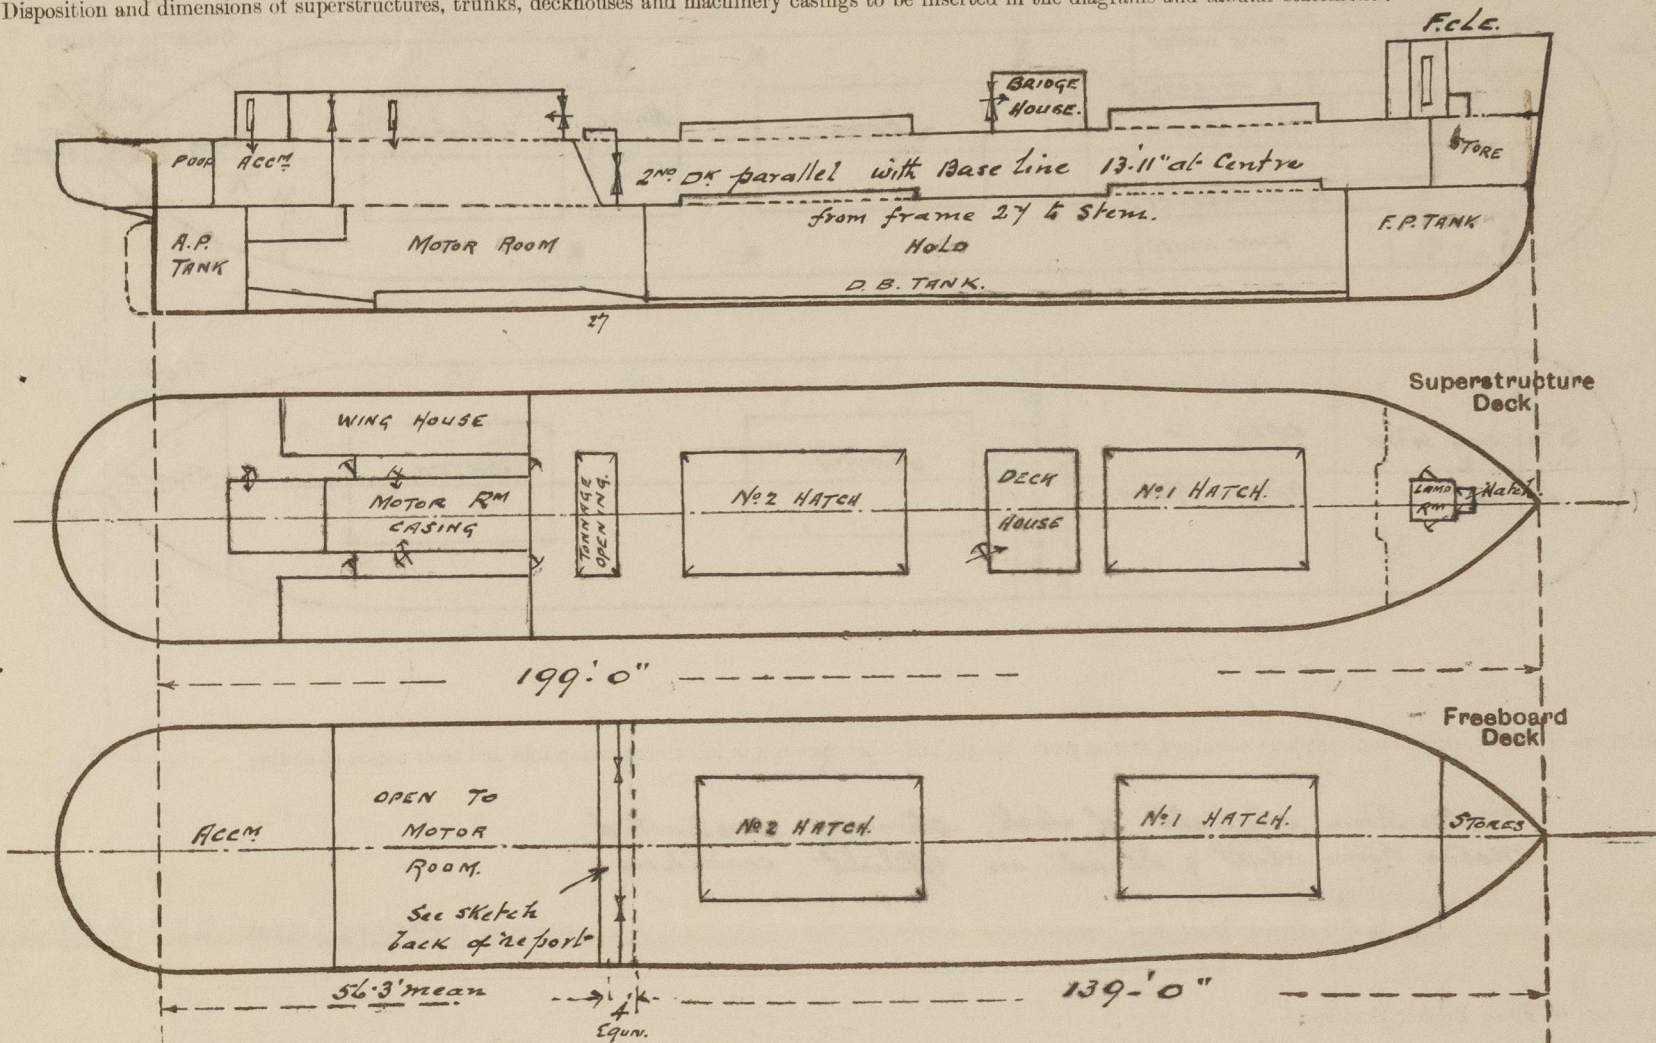 Disposition and dimensions of superstructures, trunks, deckhouses and machinery casings to be inserted in the diagrams and tabular statement.
F.cLE.
BRIDGE
HOUSE.
POOP ACCM
STORE
2ND DK parallel with Base line 13'.11" at Centre
from frame 27 to Stem.
A.P.
TANK
MOTOR ROOM
HOLD
F.P. TANK
D.B. TANK.
27
Superstructure
Deck
WING HOUSE
MOTOR RM
CASING
TONNAGE
OPENING.
No 2 HATCH
DECK
HOUSE
No 1 HATCH.
LAMP
RM
Hatch
199'.0"
Freeboard
Deck
ACCM
OPEN TO
MOTOR
ROOM.
See sketch
back of report
No 2 HATCH.
No 1 HATCH.
STORES
56.3' mean
4
Equiv.
139'-0"